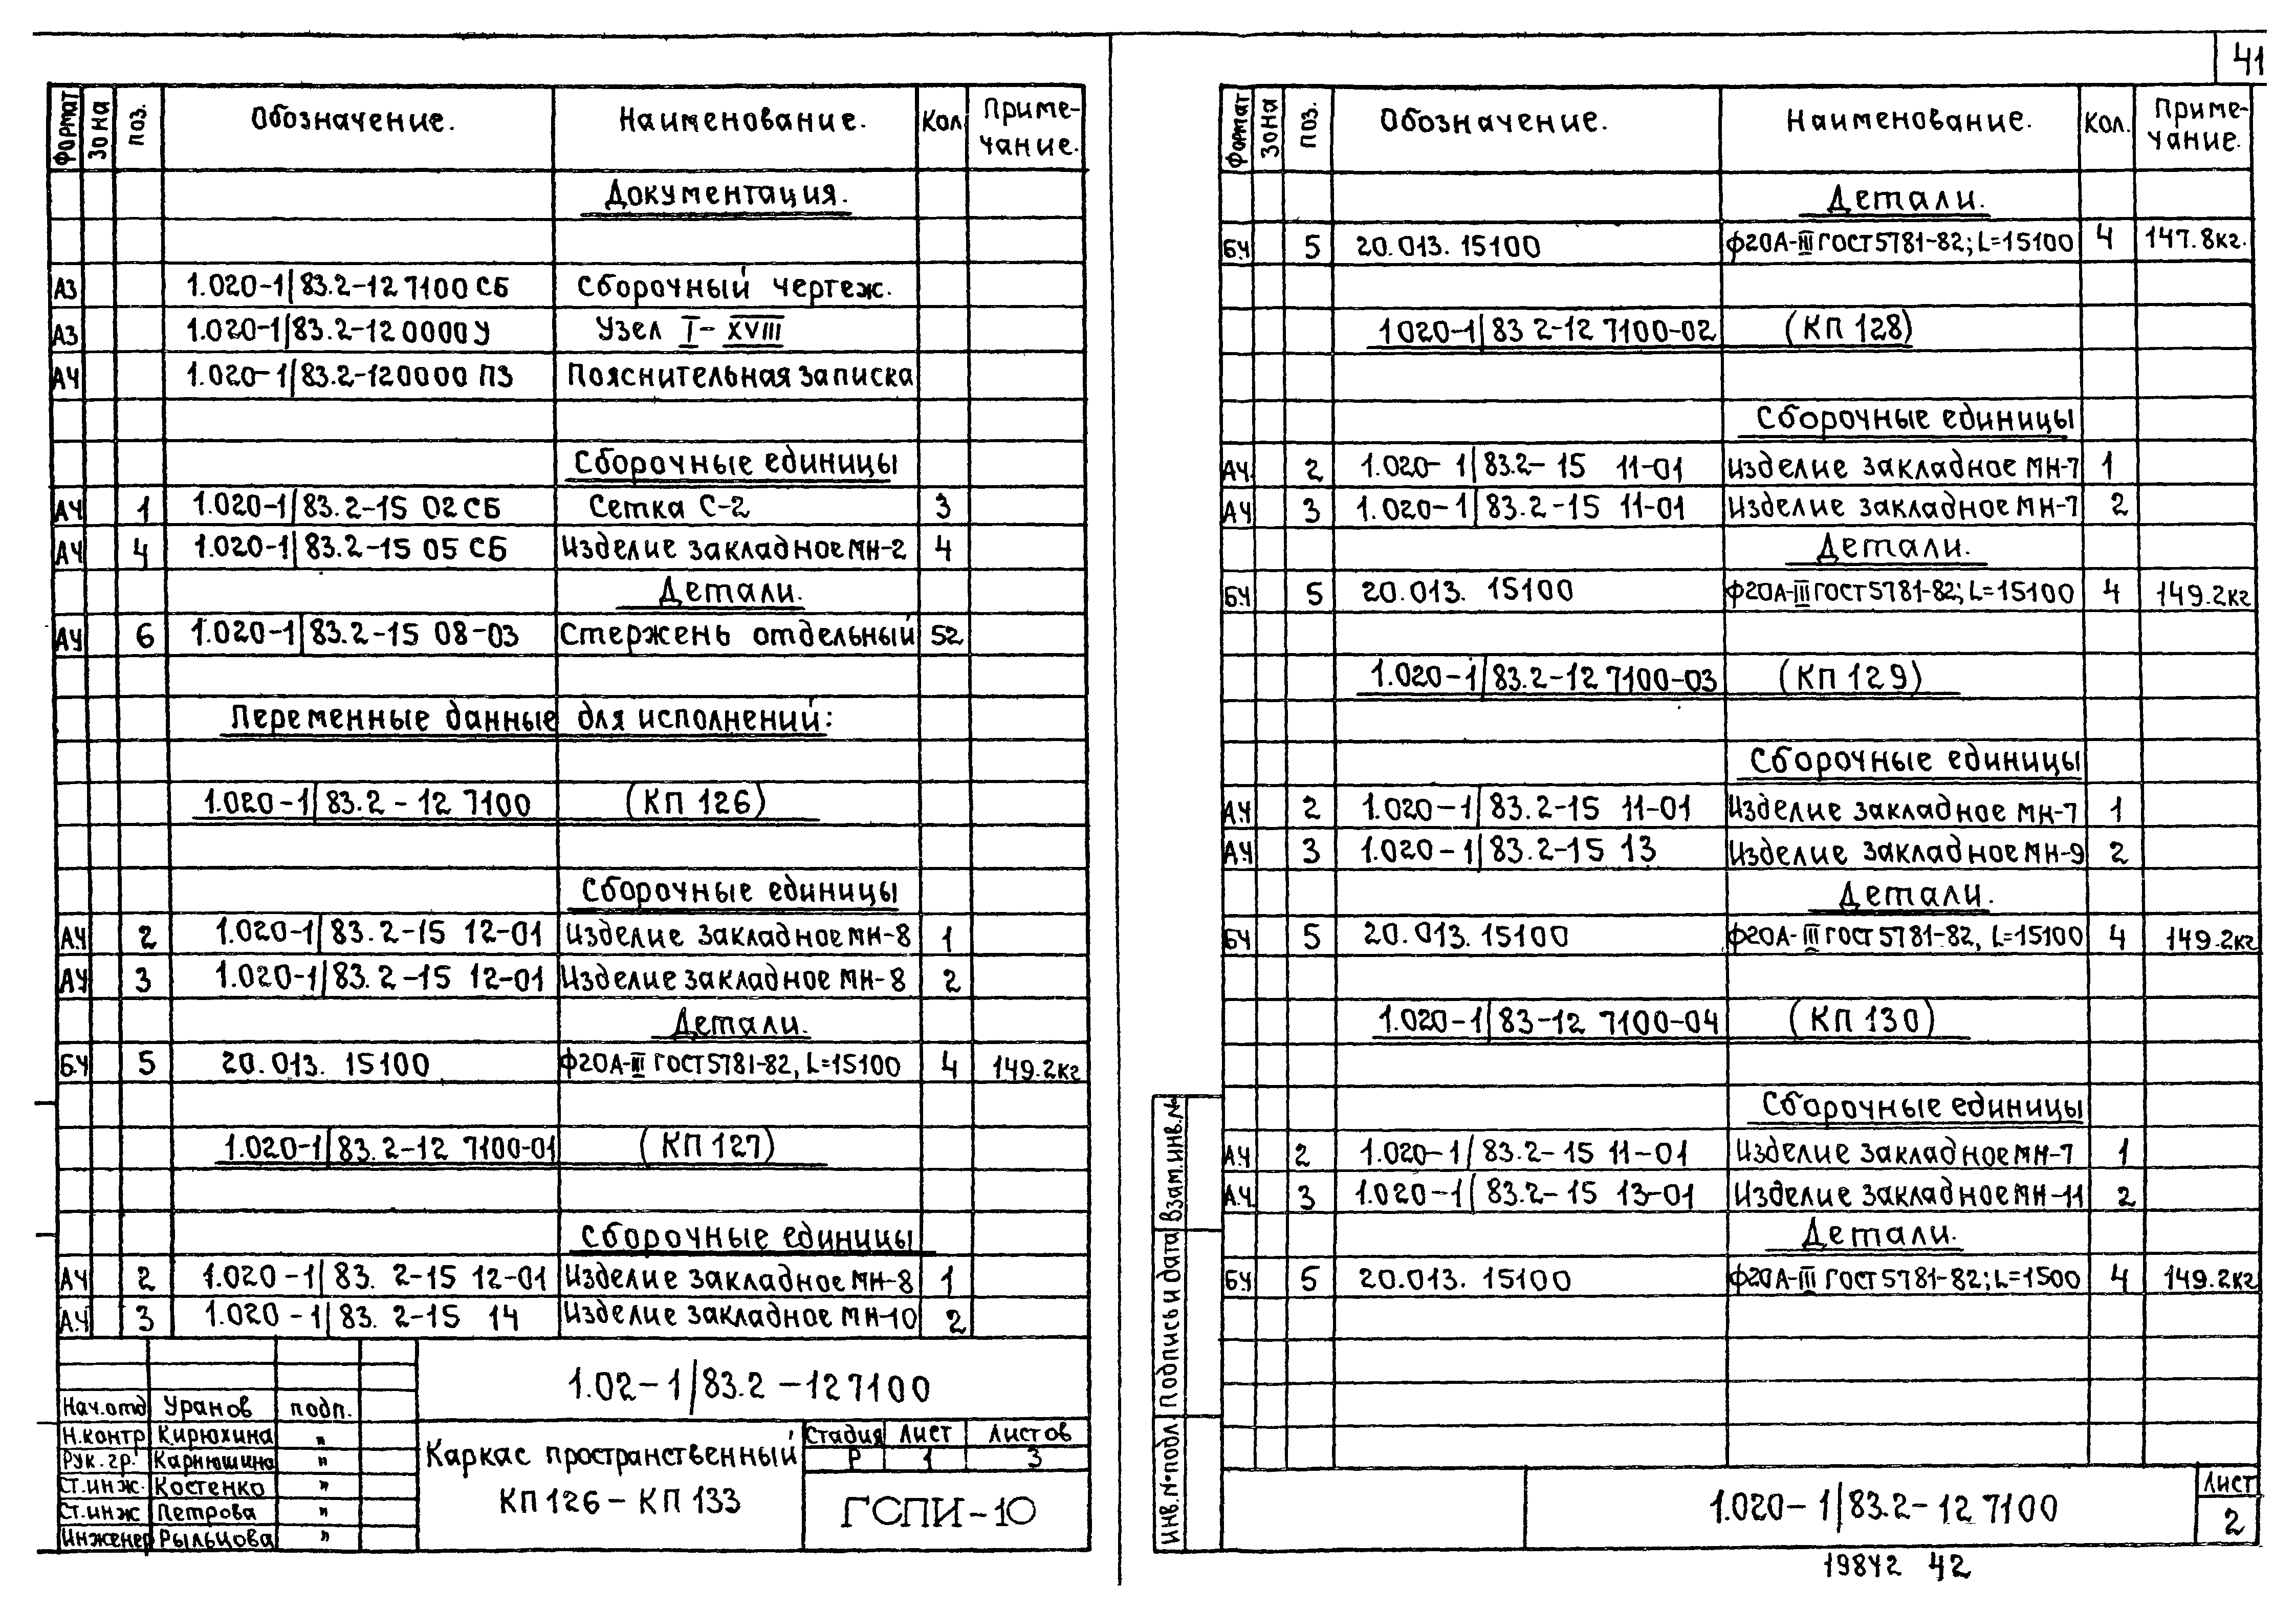 41
Формат Зона Поз. Обозначение. Наименование. Кол. Приме-
чание.
Документация.
А3 1.020-1/83.2-12 7100 СБ Сборочный чертеж.
А3 1.020-1/83.2-12 0000 У Узел I-XVIII
А4 1.020-1/83.2-12 0000 ПЗ Пояснительная записка
Сборочные единицы
А4 1 1.020-1/83.2-15 02 СБ Сетка С-2 3
А4 4 1.020-1/83.2-15 05 СБ Изделие закладное МН-2 4
Детали.
А4 6 1.020-1/83.2-15 08-03 Стержень отдельный 52
Переменные данные для исполнений:
1.020-1/83.2-12 7100 (КП 126)
Сборочные единицы
А4 2 1.020-1/83.2-15 12-01 Изделие закладное МН-8 1
А4 3 1.020-1/83.2-15 12-01 Изделие закладное МН-8 2
Детали.
Б4 5 20.013.15100 ф20А-III ГОСТ5781-82, L=15100 4 149.2кг
1.020-1/83.2-12 7100-01 (КП 127)
Сборочные единицы
А4 2 1.020-1/83.2-15 12-01 Изделие закладное МН-8 1
А4 3 1.020-1/83.2-15 14 Изделие закладное МН-10 2
1.02-1/83.2-12 7100
Нач.отд Уранов подп.
Н.контр Кирюхина "
Рук.гр. Карнюшина "
Ст.инж. Костенко "
Ст.инж Петрова "
Инженер Рыльцова "
Каркас пространственный
КП 126 – КП 133
Стадия Лист Листов
Р 1 3
ГСПИ-10
Формат Зона Поз. Обозначение. Наименование. Кол. Приме-
чание.
Детали.
Б4 5 20.013.15100 ф20А-III ГОСТ5781-82; L=15100 4 147.8кг.
1020-1/83 2-12 7100-02 (КП 128)
Сборочные единицы
А4 2 1.020-1/83.2-15 11-01 Изделие закладное МН-7 1
А4 3 1.020-1/83.2-15 11-01 Изделие закладное МН-7 2
Детали.
Б4 5 20.013.15100 ф20А-III ГОСТ5781-82; L=15100 4 149.2кг
1.020-1/83.2-12 7100-03 (КП 129)
Сборочные единицы
А4 2 1.020-1/83.2-15 11-01 Изделие закладное МН-7 1
А4 3 1.020-1/83.2-15 13 Изделие закладное МН-9 2
Детали.
Б4 5 20.013.15100 ф20А-III ГОСТ5781-82, L=15100 4 149.2кг
1.020-1/83-12 7100-04 (КП 130)
Сборочные единицы
А4 2 1.020-1/83.2-15 11-01 Изделие закладное МН-7 1
А4 3 1.020-1/83.2-15 13-01 Изделие закладное МН-11 2
Детали.
Б4 5 20.013.15100 ф20А-III ГОСТ5781-82; L=1500 4 149.2кг
Инв.№подл. Подпись и дата Взам.инв.№
1.020-1/83.2-12 7100
Лист
2
19842 42